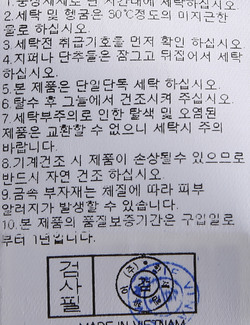 1.중성세제로 단 시간내에 세탁하십시오.
2.세탁 및 헹굼은 30℃정도의 미지근한
물로 하십시오.
3.세탁전 취급기호를 먼저 확인 하십시오
4.지퍼나 단추들은 잠그고 뒤집어서 세탁
하십시오.
5.본 제품은 단일단독 세탁 하십시오.
6.탈수 후 그늘에서 건조시켜 주십시오.
7.세탁부주의로 인한 탈색 및 오염된
제품은 교환할 수 없으니 세탁시 주의
바랍니다.
8.기계건조 시 제품이 손상될수 있으므로
반드시 자연 건조 하십시오.
9.금속 부자재는 체질에 따라 피부
알러지가 발생할 수 있습니다.
10.본 제품의 품질보증기간은 구입일로
부터 1년입니다.
검사필
MADE IN VIETNAM